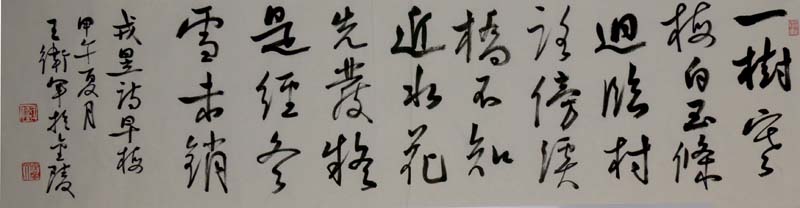 一樹寒
梅白玉條
迥臨村
路傍溪
橋不知
近水花
先發疑
是經冬
雪未銷
戎昱詩早梅
甲午夏月
王衛軍於金陵